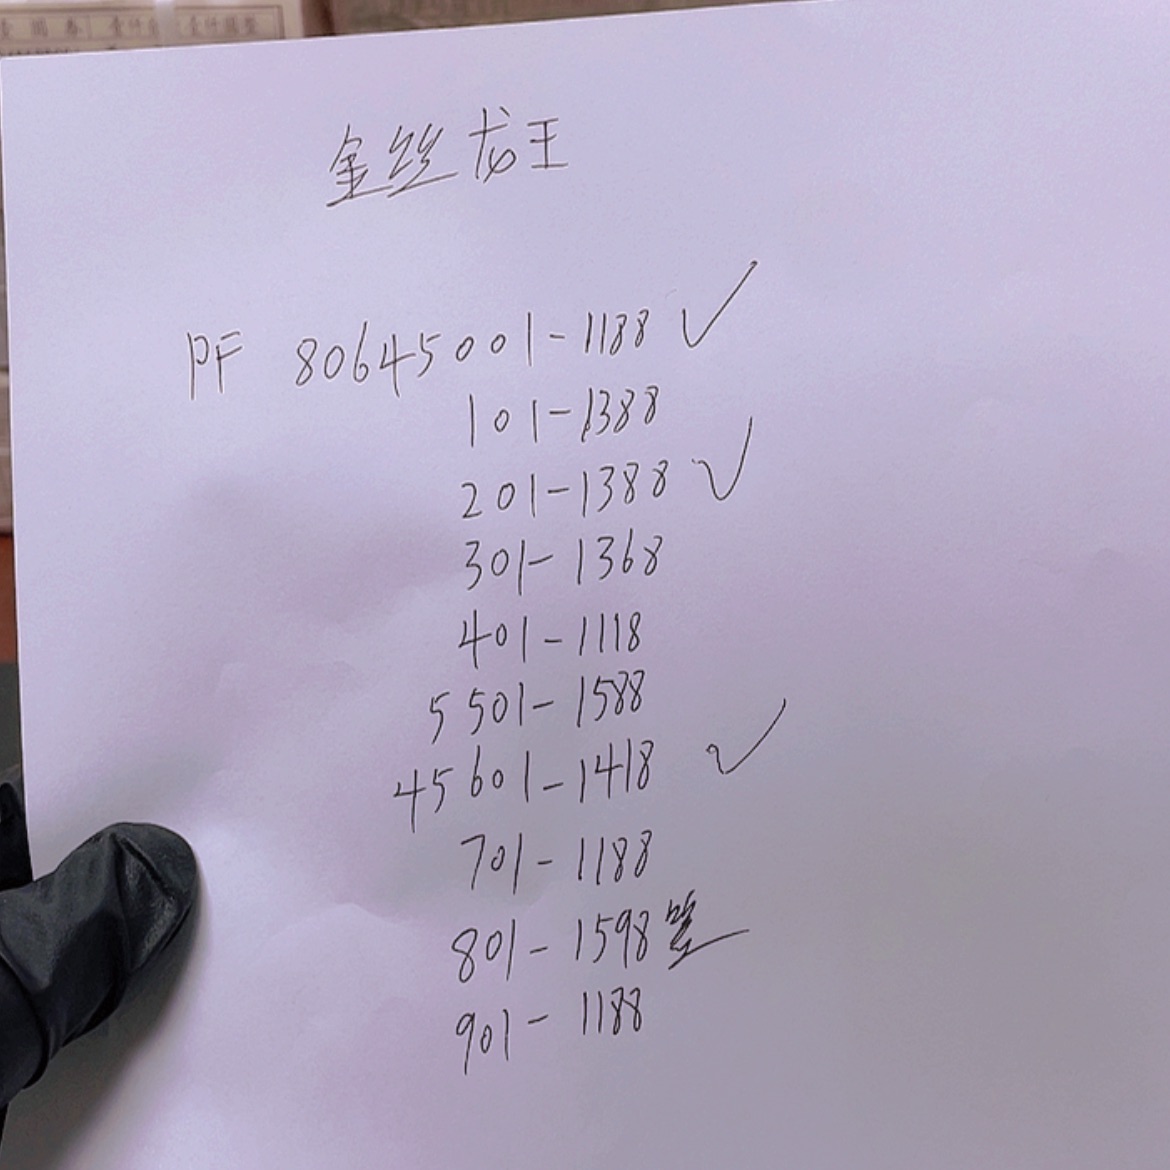 金丝龙王
PF 80645001-1188 ✓
101-1388
201-1388 ✓
301-1368
401-1118
5501-1588
45601-1418 ✓
701-1188
801-1598
901-1188